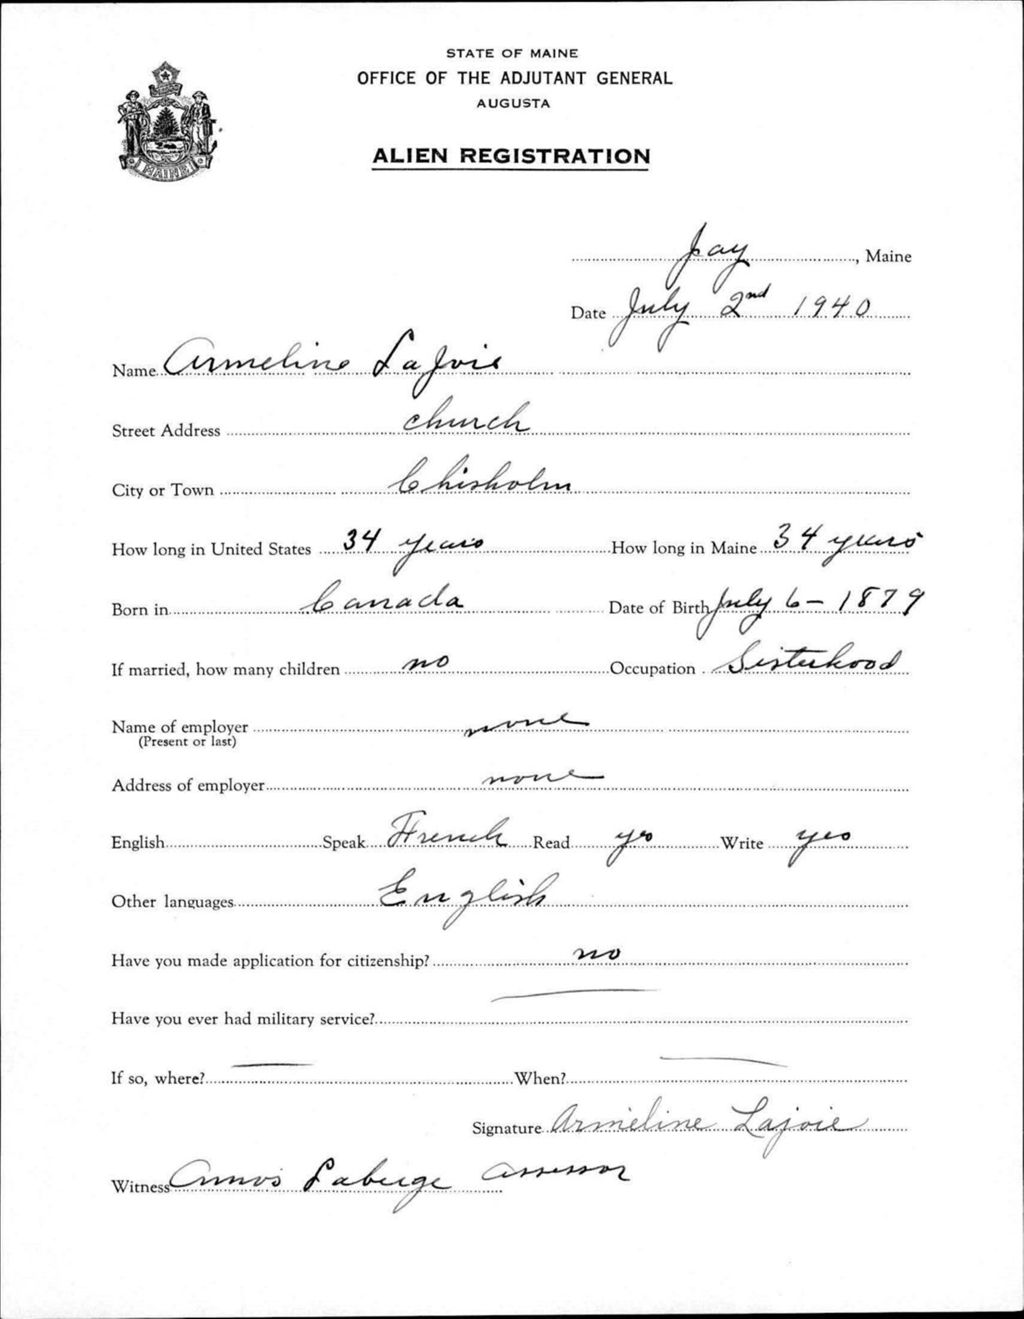 STATE OF MAINE
OFFICE OF THE ADJUTANT GENERAL
AUGUSTA
ALIEN REGISTRATION
MAINE
Jay, Maine
Date July 2nd 1940
Name Armeline LaJoie
Street Address church
City or Town Chisholm
How long in United States 34 years How long in Maine 34 years
Born in Canada Date of Birth July 6 - 1879
If married, how many children no Occupation Sisterhood
Name of employer none
(Present or last)
Address of employer none
English Speak French Read yes Write yes
Other languages English
Have you made application for citizenship? no
Have you ever had military service? —
If so, where? — When? —
Signature Armeline Lajoie
Witness Amos Laberge assessor